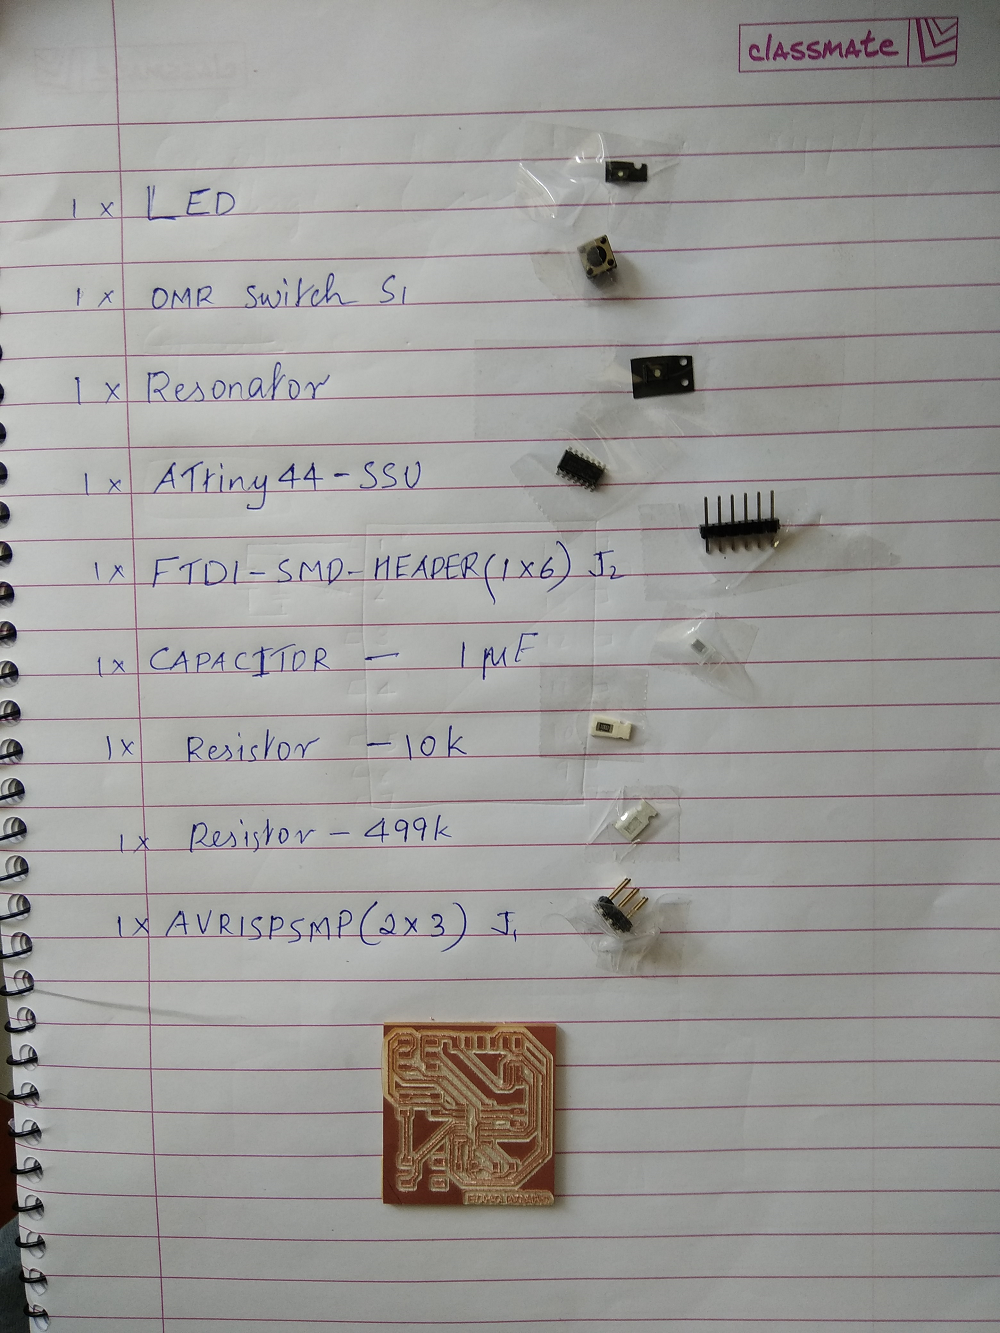 classmate
1 x LED
1 x OMR Switch S1
1 x Resonator
1 x ATtiny 44 - SSU
1x FTDI-SMD-HEADER(1x6) J2
1x CAPACITOR — 1 µF
1x Resistor - 10k
1x Resistor - 499k
1x AVRISPSMD(2x3) J1